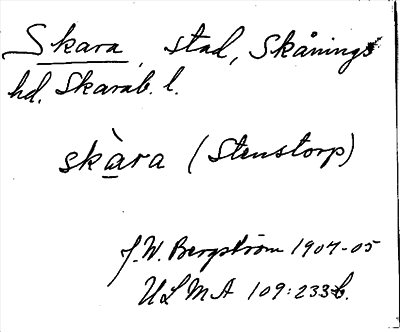 Skara, stad, Skånings
hd. Skarab. l.
skàra (Stenstorp)
J. W. Bergström 1904-05
ULMA 109:233 b.